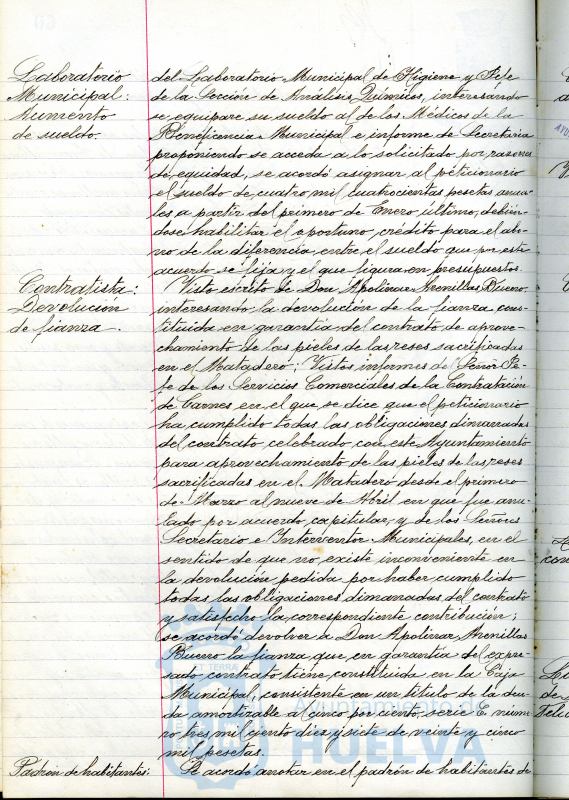 Laboratorio
Municipal:
Aumento
de sueldo.
del Laboratorio Municipal de Higiene y Jefe
de la Sección de Análisis Químicos, interesando
se equipare su sueldo al de los Médicos de la
Beneficencia Municipal e informe de Secretaria
proponiendo se acceda a lo solicitado por razones
de equidad, se acordó asignar al peticionario
el sueldo de cuatro mil cuatrocientas pesetas anua-
les a partir del primero de Enero último, debién-
dose habilitar el oportuno crédito para el abo-
no de la diferencia entre el sueldo que por este
acuerdo se fija y el que figura en presupuestos.
Contratista:
Devolución
de fianza.
Visto escrito de Don Apolinar Arenillas Bueno,
interesando la devolución de la fianza cons-
tituida en garantía del contrato de aprove-
chamiento de las pieles de las reses sacrificadas
en el Matadero; Vistos informes del Señor Je-
fe de los Servicios Comerciales de la Contratación
de Carnes en el que se dice que el peticionario
ha cumplido todas las obligaciones dimanadas
del contrato celebrado con este Ayuntamiento
para aprovechamiento de las pieles de las reses
sacrificadas en el Matadero desde el primero
de Marzo al nueve de Abril en que fue anu-
lado por acuerdo capitular, y de los Señores
Secretario e Interventor Municipales, en el
sentido de que no existe inconveniente en
la devolución pedida por haber cumplido
todas las obligaciones dimanadas del contrato
y satisfecho la correspondiente contribución;
se acordó devolver a Don Apolinar Arenillas
Bueno la fianza que en garantía del expre-
sado contrato tiene constituida en la Caja
Municipal, consistente en un título de la deu-
da amortizable al cinco por ciento, serie E núme-
ro tres mil ciento diez y siete de veinte y cinco
mil pesetas.
Padrón de habitantes:
Se acordó anotar en el padrón de habitantes de
Ayuntamiento de
HUELVA